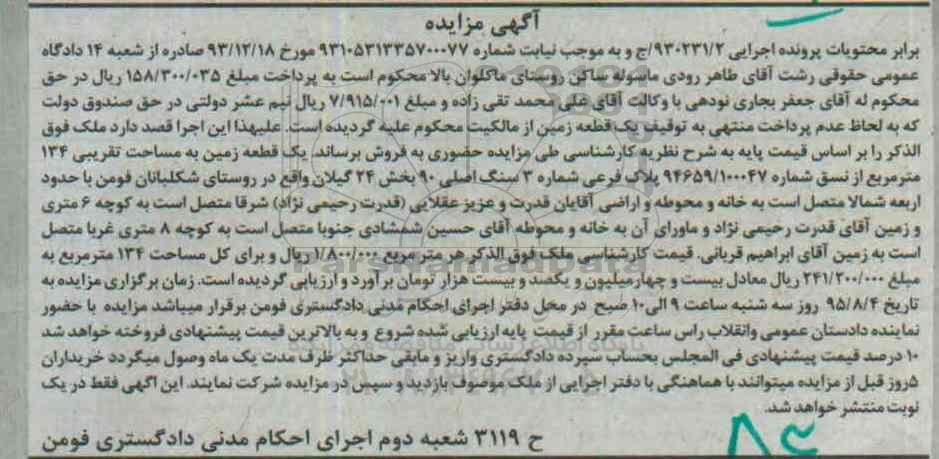 آگهی مزایده
برابر محتویات پرونده اجرایی ۹۳۰۲۳۱/۲/ج و به موجب نیابت شماره ۹۳۱۰۵۳۱۳۳۵۷۰۰۰۷۷ مورخ ۹۳/۱۲/۱۸ صادره از شعبه ۱۴ دادگاه
عمومی حقوقی رشت آقای طاهر رودی ماسوله ساکن روستای ماکلوان بالا محکوم است به پرداخت مبلغ ۱۵۸/۳۰۰/۰۳۵ ریال در حق
محکوم له آقای جعفر بجاری نودهی با وکالت آقای علی محمد تقی زاده و مبلغ ۷/۹۱۵/۰۰۱ ریال نیم عشر دولتی در حق صندوق دولت
که به لحاظ عدم پرداخت منتهی به توقیف یک قطعه زمین از مالکیت محکوم علیه گردیده است. علیهذا این اجرا قصد دارد ملک فوق
الذکر را بر اساس قیمت پایه به شرح نظریه کارشناسی طی مزایده حضوری به فروش برساند. یک قطعه زمین به مساحت تقریبی ۱۳۴
مترمربع از نسق شماره ۹۴۶۵۹/۱۰۰۰۴۷ پلاک فرعی شماره ۳ سنگ اصلی ۹۰ بخش ۲۴ گیلان واقع در روستای شکلبانان فومن با حدود
اربعه شمالا متصل است به خانه و محوطه و اراضی آقایان قدرت و عزیز عقلایی (قدرت رحیمی نژاد) شرقا متصل است به کوچه ۶ متری
و زمین آقای قدرت رحیمی نژاد و ماورای آن به خانه و محوطه آقای حسین شمشادی جنوبا متصل است به کوچه ۸ متری غربا متصل
است به زمین آقای ابراهیم قربانی. قیمت کارشناسی ملک فوق الذکر هر متر مربع ۱/۸۰۰/۰۰۰ ریال و برای کل مساحت ۱۳۴ مترمربع به
مبلغ ۲۴۱/۲۰۰/۰۰۰ ریال معادل بیست و چهار میلیون و یکصد و بیست هزار تومان برآورد و ارزیابی گردیده است. زمان برگزاری مزایده به
تاریخ ۹۵/۸/۴ روز سه شنبه ساعت ۹ الی ۱۰ صبح در محل دفتر اجرای احکام مدنی دادگستری فومن برقرار میباشد مزایده با حضور
نماینده دادستان عمومی وانقلاب راس ساعت مقرر از قیمت پایه ارزیابی شده شروع و به بالاترین قیمت پیشنهادی فروخته خواهد شد
۱۰ درصد قیمت پیشنهادی فی المجلس بحساب سپرده دادگستری واریز و مابقی حداکثر ظرف مدت یک ماه وصول میگردد خریداران
۵روز قبل از مزایده میتوانند با هماهنگی با دفتر اجرایی از ملک موصوف بازدید و سپس در مزایده شرکت نمایند. این اگهی فقط در یک
نوبت منتشر خواهد شد.
ح ۳۱۱۹ شعبه دوم اجرای احکام مدنی دادگستری فومن